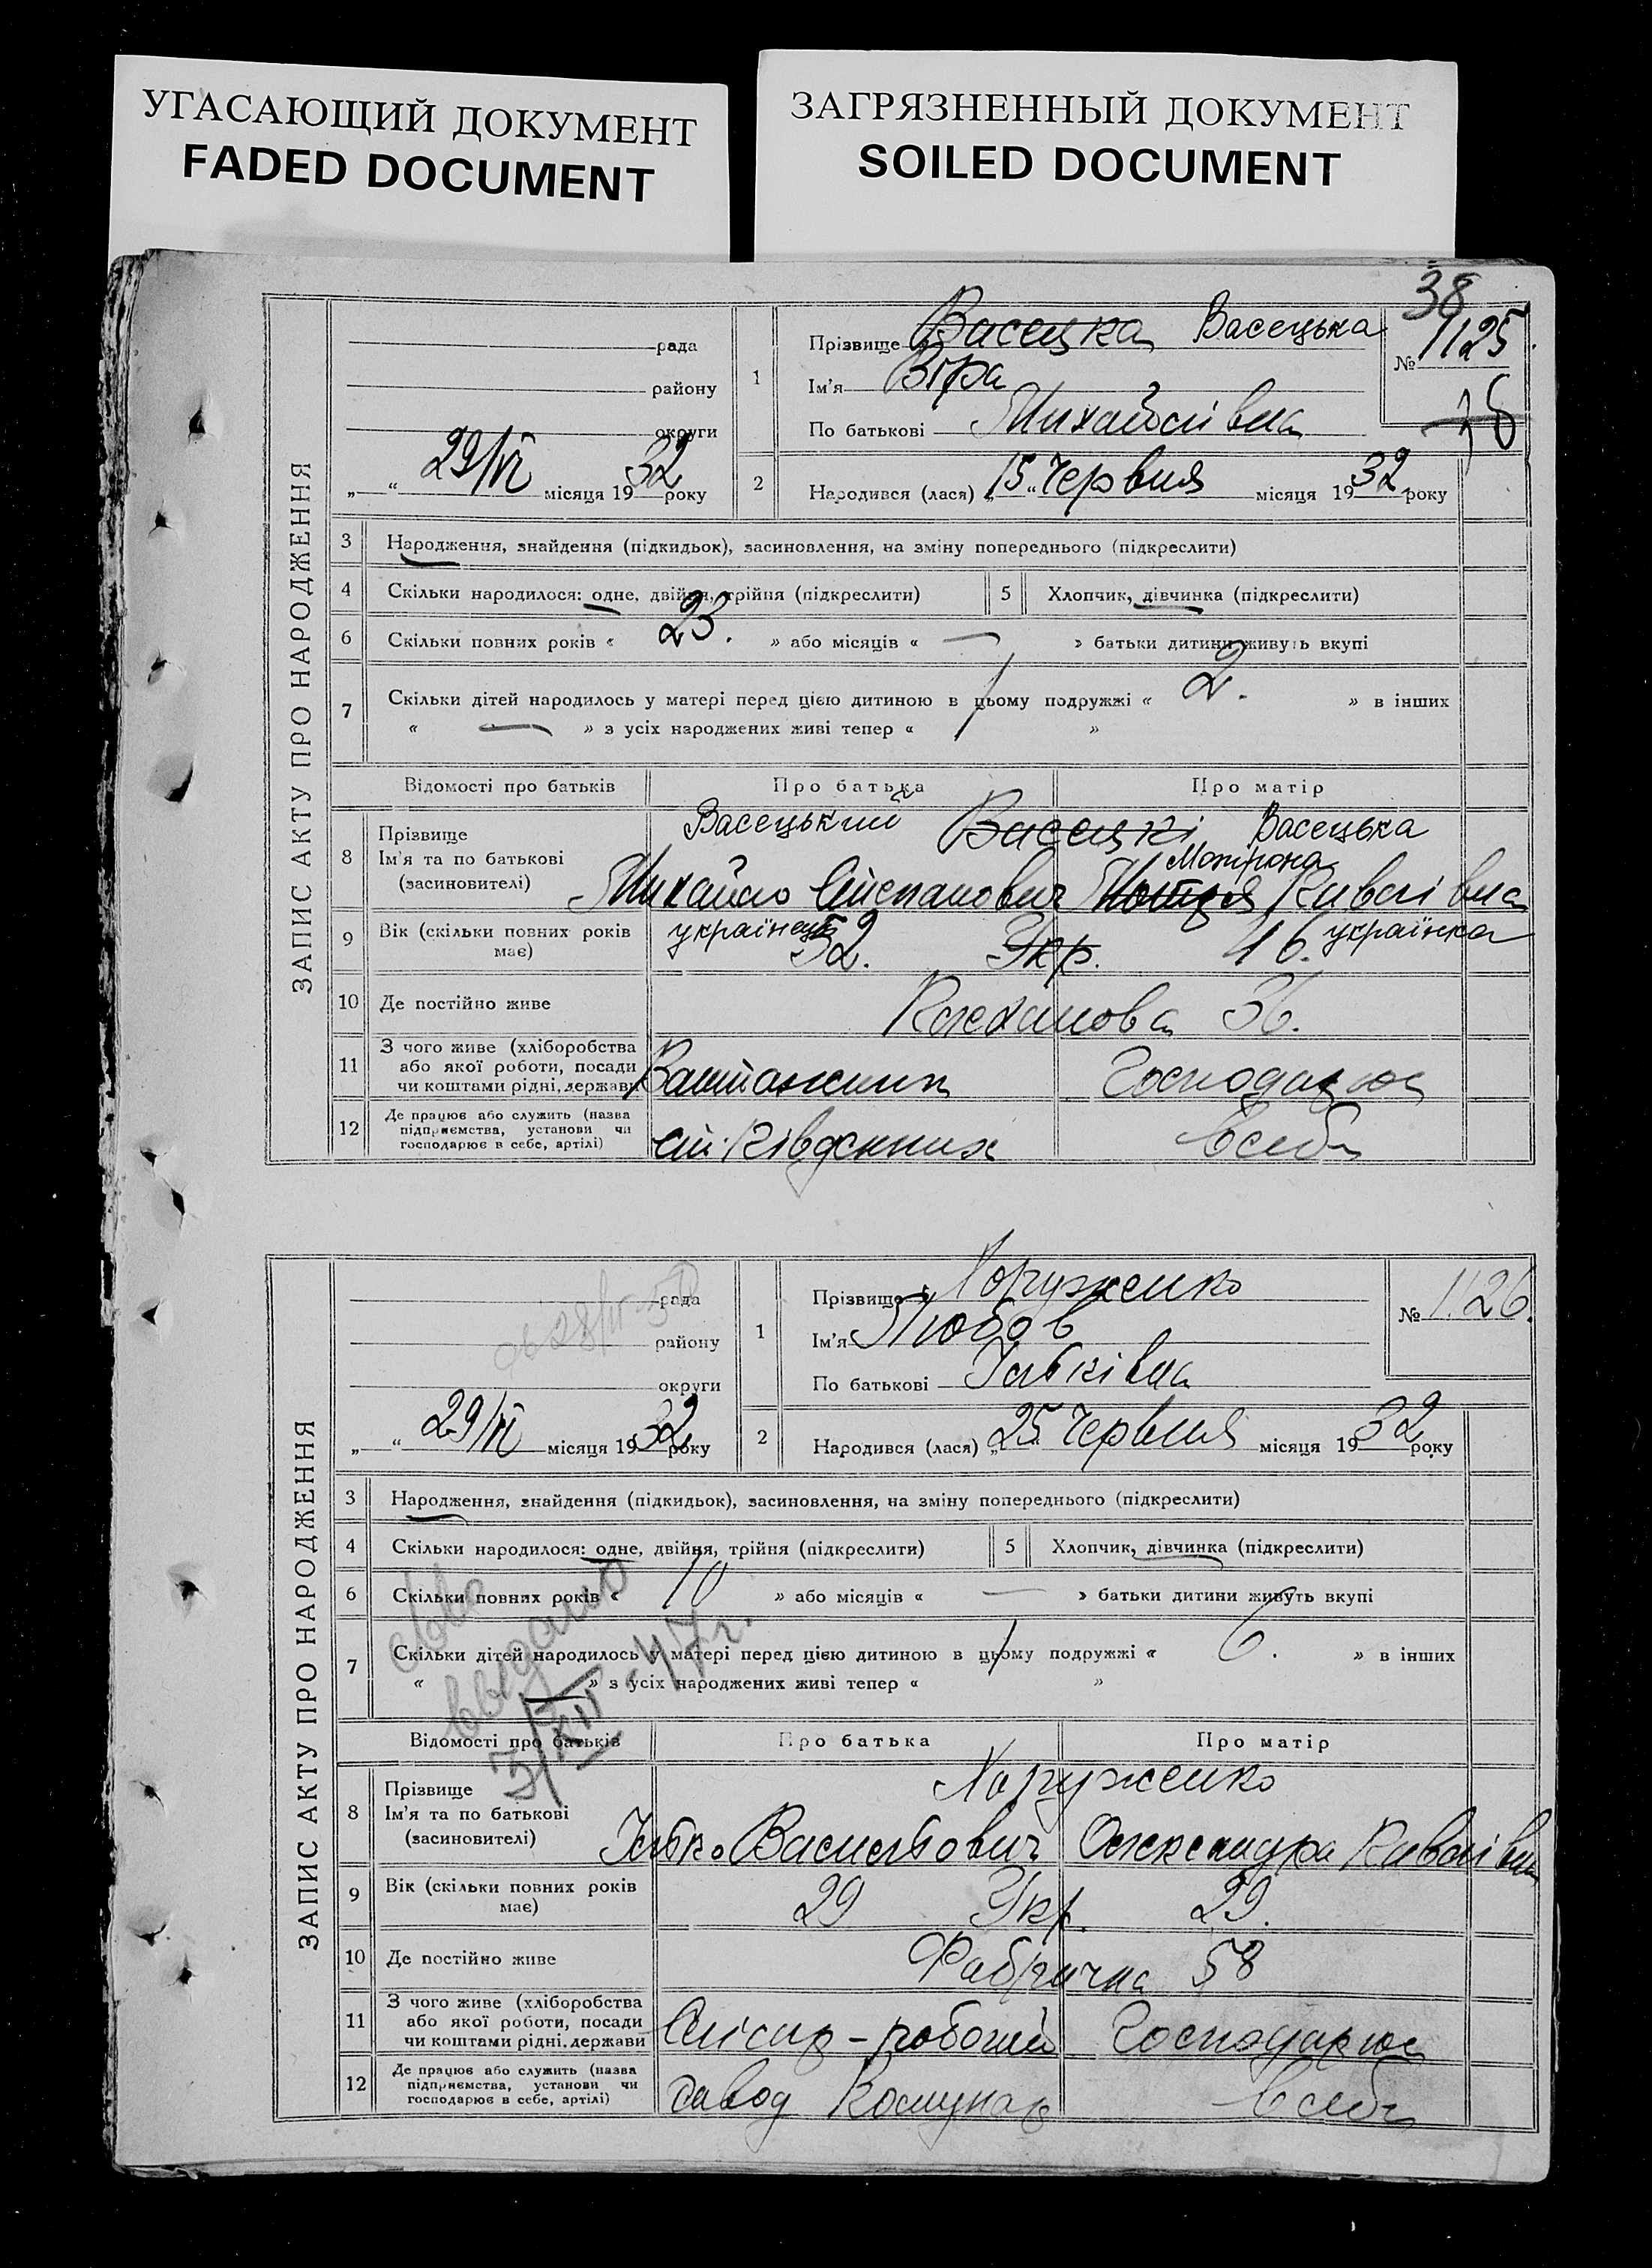 УГАСАЮЩИЙ ДОКУМЕНТ
FADED DOCUMENT
ЗАГРЯЗНЕННЫЙ ДОКУМЕНТ
SOILED DOCUMENT
38
ЗАПИС АКТУ ПРО НАРОДЖЕННЯ
рада
району
округи
„ “ 29/VI місяця 1932 року
1 Прізвище Васецка Васецька
Ім'я Віра
По батькові Михайлівна
№ 1125
38
2 Народився (лася) „15“ Червня місяця 1932 року
3 Народження, знайдення (підкидьок), засиновлення, на зміну попереднього (підкреслити)
4 Скільки народилося: одне, двійня, трійня (підкреслити) 5 Хлопчик, дівчинка (підкреслити)
6 Скільки повних років « 23. » або місяців « — » батьки дитини живуть вкупі
7 Скільки дітей народилось у матері перед цією дитиною в цьому подружжі « 2. » в інших
« — » з усіх народжених живі тепер « »
Відомості про батьків Про батька Про матір
8 Прізвище Васецький Васецкі Васецька
Ім'я та по батькові Мотрона
(засновителі) Михайло Степанович Павлівна
9 Вік (скільки повних років має) українець 52. Укр. 46. українка
10 Де постійно живе Плеханова 36.
11 З чого живе (хліборобства
або якої роботи, посади
чи коштами рідні, держави Вантажник Господарює
12 Де працює або служить (назва
підприємства, установи чи
господарює в себе, артілі) ст. Південних в себе
ЗАПИС АКТУ ПРО НАРОДЖЕННЯ
рада
району
округи
„ “ 29/VI місяця 1932 року
1 Прізвище Хоруженко
Ім'я Любов
По батькові Юльківна
№ 1126.
2 Народився (лася) „25“ Червня місяця 1932 року
3 Народження, знайдення (підкидьок), засиновлення, на зміну попереднього (підкреслити)
4 Скільки народилося: одне, двійня, трійня (підкреслити) 5 Хлопчик, дівчинка (підкреслити)
6 Скільки повних років « 10 » або місяців « — » батьки дитини живуть вкупі
7 Скільки дітей народилось у матері перед цією дитиною в цьому подружжі « 6. » в інших
« — » з усіх народжених живі тепер « »
выдано
3/XII-47 г.
Відомості про батьків Про батька Про матір
8 Прізвище Хоруженко
Ім'я та по батькові
(засиновителі) Василович Олександра Павлівна
9 Вік (скільки повних років має) 29 Укр. 29.
10 Де постійно живе Фабрична 58
11 З чого живе (хліборобства
або якої роботи, посади
чи коштами рідні, держави Слісар – робочий Господарює
12 Де працює або служить (назва
підприємства, установи чи
господарює в себе, артілі) завод Комунар в себе